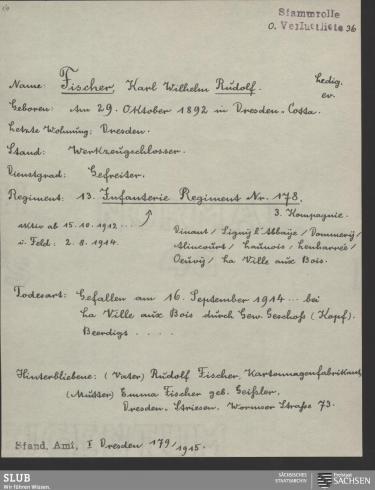 Stammrolle
o. Verlustliste 96
Name: Fischer, Karl Wilhelm Rudolf. ledig.
ev.
Geboren: Am 29. Oktober 1892 in Dresden-Cotta.
Letzte Wohnung: Dresden.
Stand: Werkzeugschlosser.
Dienstgrad: Gefreiter.
Regiment: 13. Infanterie Regiment Nr. 178.
3. Kompagnie.
aktiv ab 15.10.1912 ...
i. Feld: 2.8.1914.
Dinant / Ligny l'Abbaÿe / Dommery /
Alincourt / Launois / Lenharrée /
Oeuvÿ / La Ville aux Bois.
Todesart: Gefallen am 16. September 1914 ... bei
La Ville aux Bois durch Gew. Geschoß (Kopf).
Beerdigt . . . .
Hinterbliebene: (Vater) Rudolf Fischer, Kartonnagenfabrikant,
(Mutter) Emma Fischer geb. Geißler,
Dresden-Striesen. Wormser Straße 73.
Stand. Amt, I Dresden 179/1915.
SLUB
Wir führen Wissen.
SÄCHSISCHES
STAATSARCHIV
Freistaat
SACHSEN